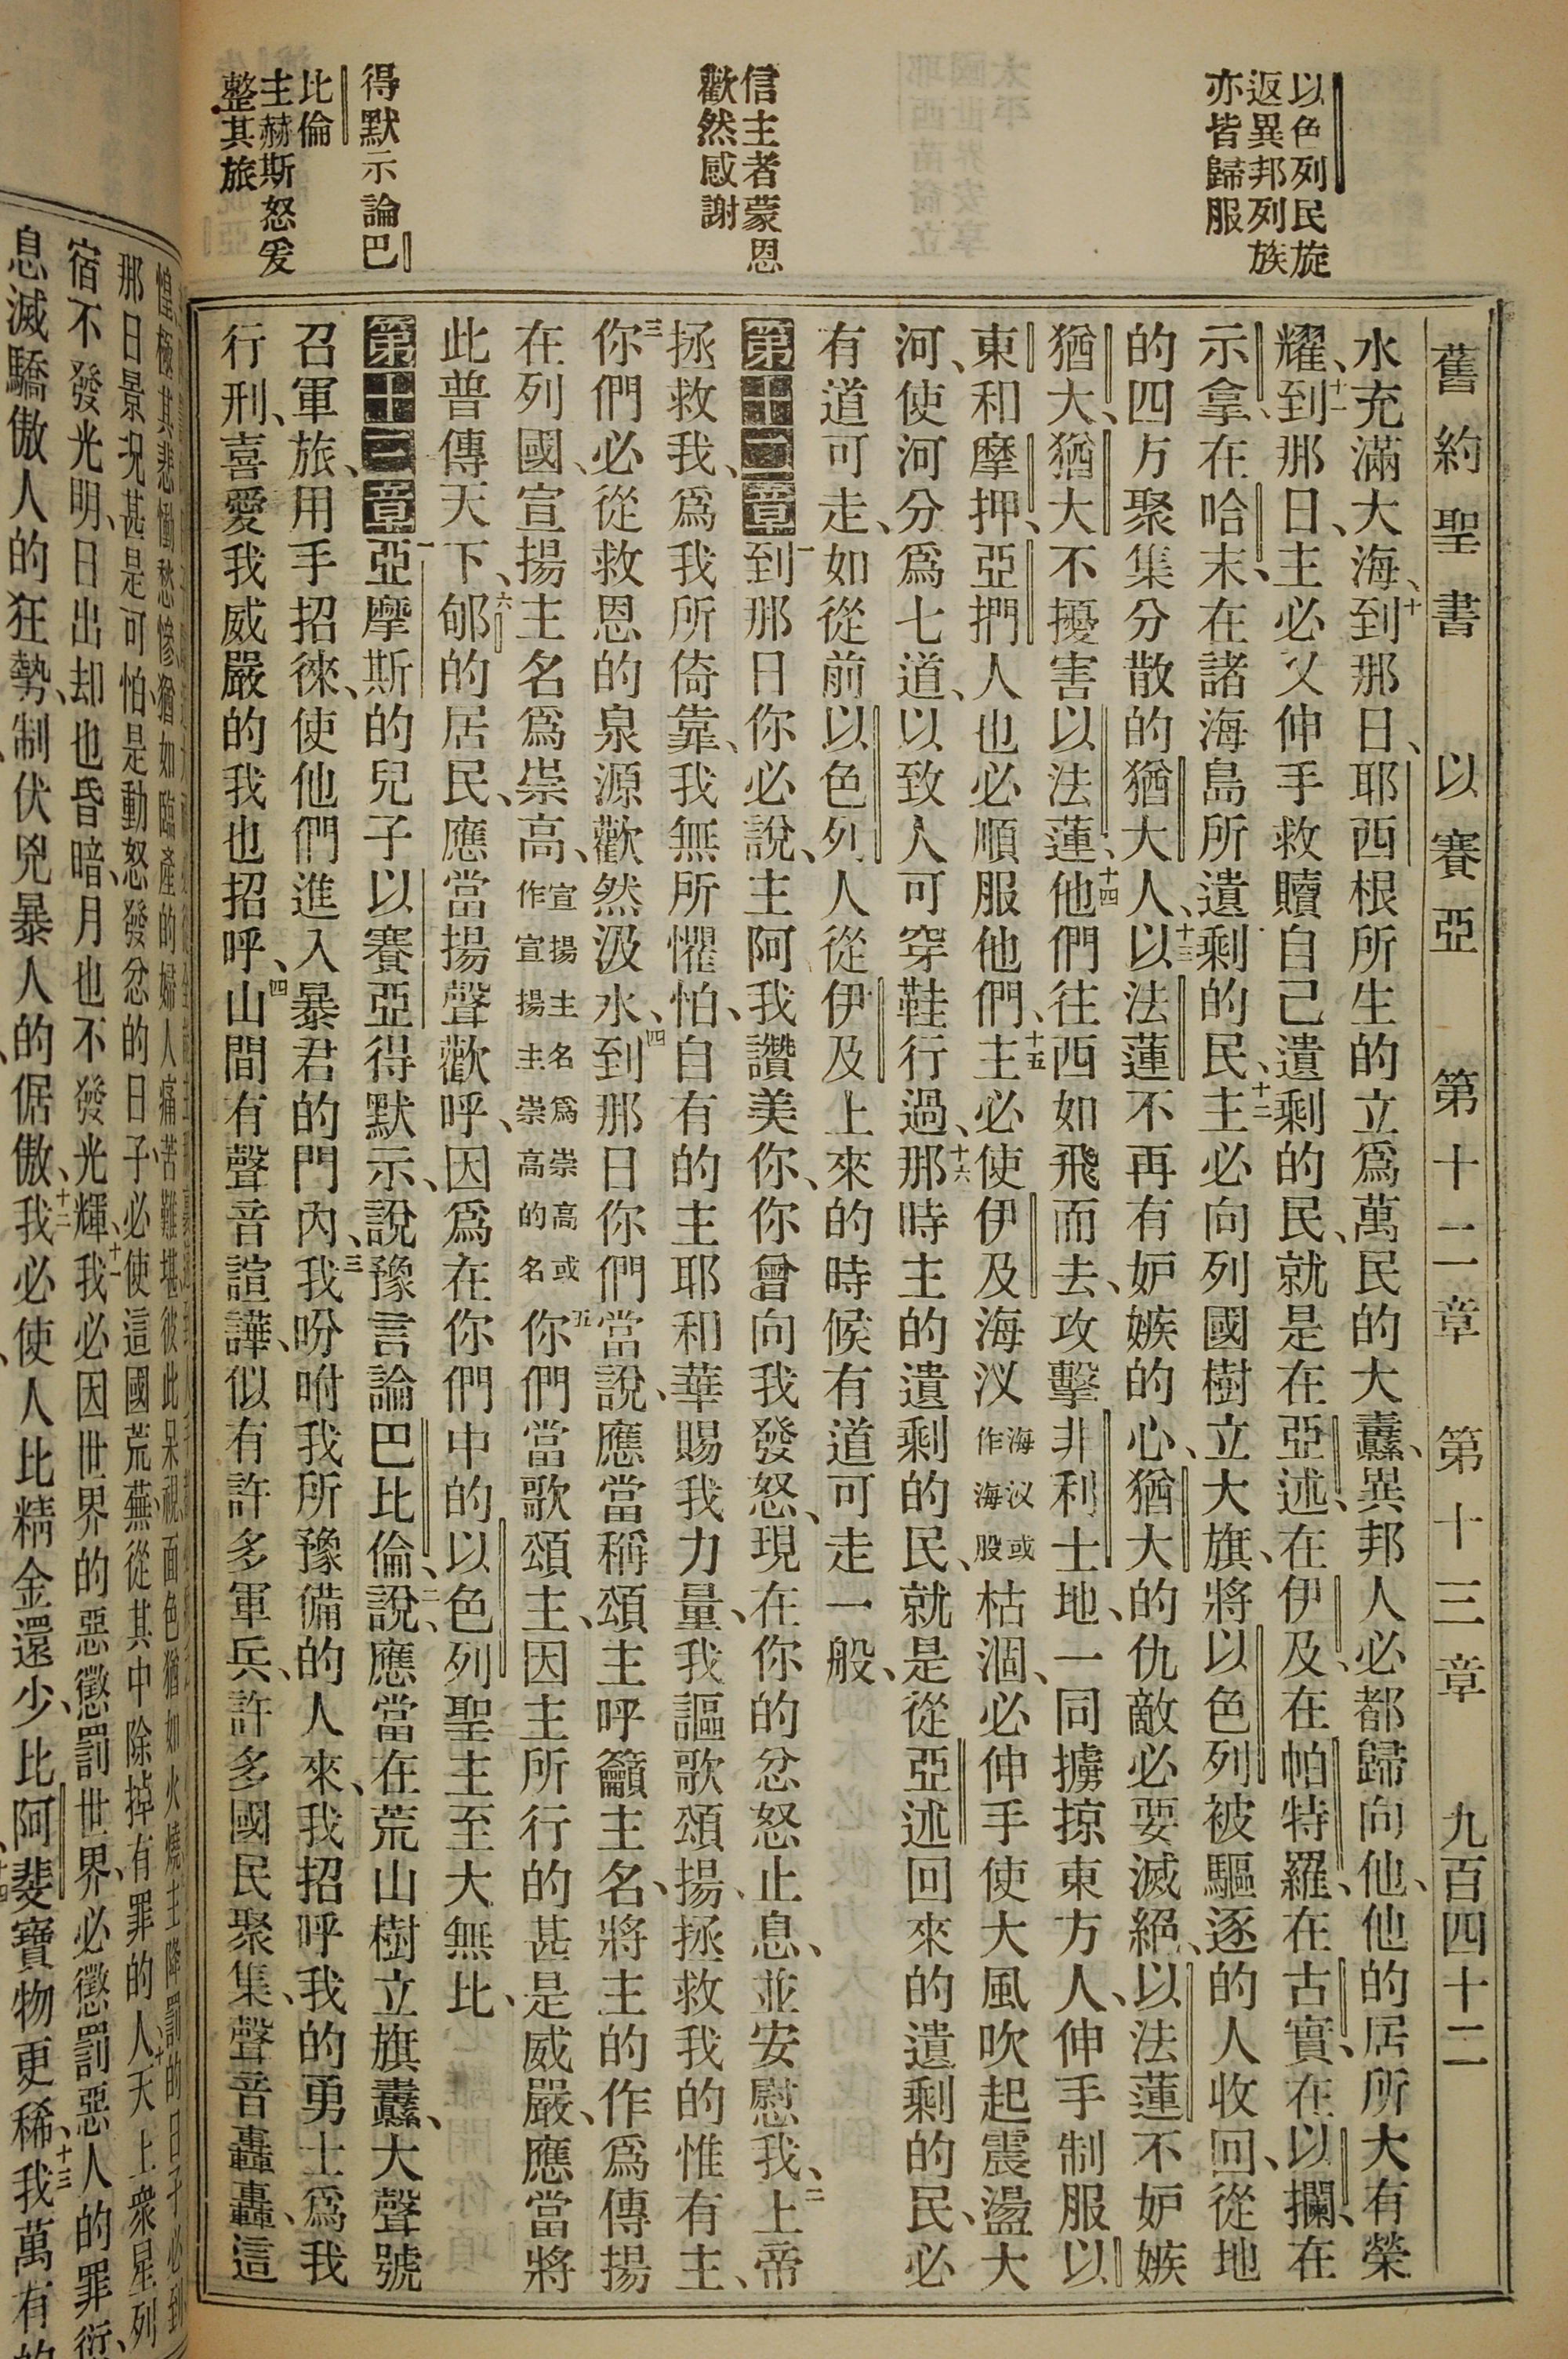 舊約聖書 以賽亞 第十二章 第十三章 九百四十二
以色列民旋
返異邦列族
亦皆歸服
信主者蒙恩
歡然感謝
得默示論巴
比倫
主赫斯怒爰
整其旅
水充滿大海、十到那日、耶西根所生的立爲萬民的大纛、異邦人必都歸向他、他的居所大有榮
耀、十一到那日、主必又伸手救贖自己遺剩的民、就是在亞述、在伊及、在帕特羅、在古實、在以攔、在
示拿、在哈末、在諸海島所遺剩的民、十二主必向列國樹立大旗、將以色列被驅逐的人收回、從地
的四方聚集分散的猶大人、十三以法蓮不再有妒嫉的心、猶大的仇敵必要滅絕、以法蓮不妒嫉
猶大、猶大不擾害以法蓮、十四他們往西如飛而去、攻擊非利士地、一同擄掠東方人、伸手制服以
東和摩押、亞捫人也必順服他們、十五主必使伊及海汊海汊或作海股枯涸、必伸手使大風吹起震盪大
河、使河分爲七道、以致人可穿鞋行過、十六那時主的遺剩的民、就是從亞述回來的遺剩的民、必
有道可走、如從前以色列人從伊及上來的時候有道可走一般、
第十二章一到那日你必說、主阿我讚美你、你曾向我發怒、現在你的忿怒止息、並安慰我、二上帝
拯救我、爲我所倚靠、我無所懼怕、自有的主耶和華賜我力量、我謳歌頌揚、拯救我的惟有主、
三你們必從救恩的泉源歡然汲水、四到那日你們當說、應當稱頌主呼籲主名、將主的作爲傳揚
在列國、宣揚主名爲崇高、宣揚主名爲崇高或作宣揚主崇高的名五你們當歌頌主、因主所行的甚是威嚴、應當將
此普傳天下、六郇的居民、應當揚聲歡呼、因爲在你們中的以色列聖主至大無比、
第十三章一亞摩斯的兒子以賽亞得默示、說豫言論巴比倫、二說、應當在荒山樹立旗纛、大聲號
召軍旅、用手招徠、使他們進入暴君的門內、三我吩咐我所豫備的人來、我招呼我的勇士爲我
行刑、喜愛我威嚴的我也招呼、四山間有聲音諠譁、似有許多軍兵、許多國民聚集、聲音轟轟、這
惶極其悲慟愁慘、猶如臨產的婦人痛苦難堪、彼此呆視、面色猶如火燒、主降罰的日子必到
那日景況甚是可怕、是動怒發忿的日子、必使這國荒蕪、從其中除掉有罪的人、十天上衆星列
宿不發光明、日出却也昏暗、月也不發光輝、十一我必因世界的惡懲罰世界、必懲罰惡人的罪
息滅驕傲人的狂勢、制伏兇暴人的倨傲、十二我必使人比精金還少、比阿斐寶物更稀、十三我萬有的